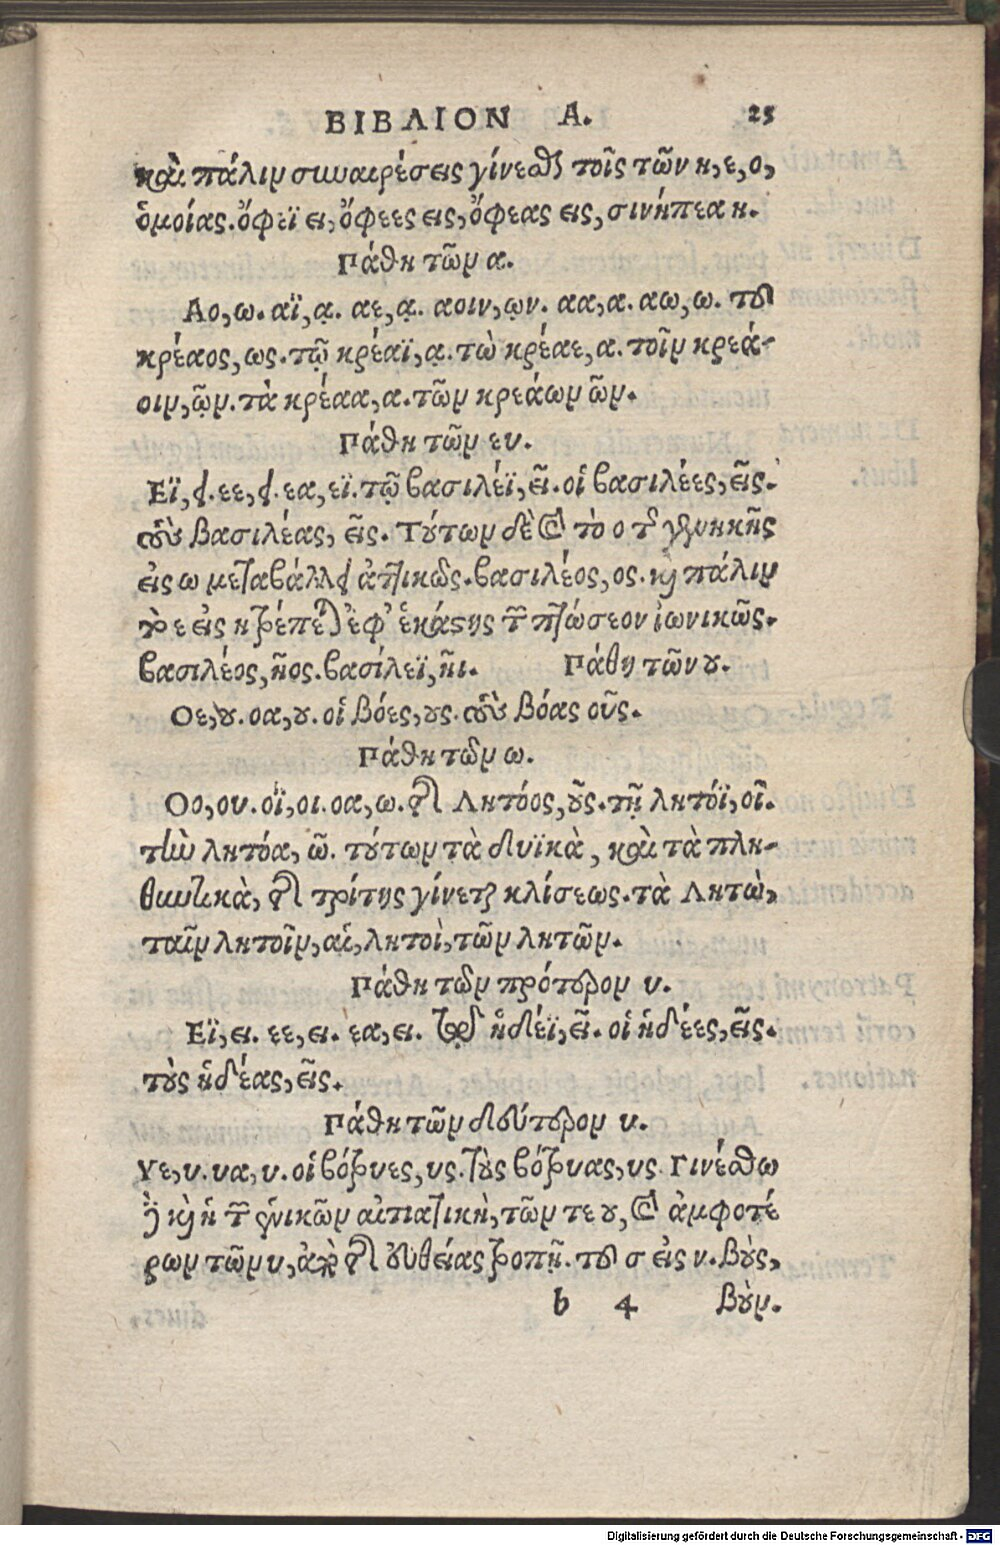 ΒΙΒΛΙΟΝ Α. 25
καὶ πάλιν συναιρέσεις γίνεσθαι τοῖς τῶν η, ε, ο,
ὁμοίας. ὄφεϊ ει, ὄφεες εις, ὄφεας εις, σινήπεα η.
Πάθη τῶν α.
Αο, ω. αϊ, ᾳ. αε, ᾳ. αοιν, ῳν. αα, α. αω, ω. τοῦ
κρέαος, ως. τῷ κρέαϊ, ᾳ. τὼ κρέαε, α. τοῖν κρεά-
οιν, ῷν. τὰ κρέαα, α. τῶν κρεάων ῶν.
Πάθη τῶν ευ.
Εϊ, ει. εε, ει. εα, εϊ. τῷ βασιλέϊ, εῖ. οἱ βασιλέες, εῖς.
τοὺς βασιλέας, εῖς. Τούτων δὲ καὶ τὸ ο τῆς γενικῆς
εἰς ω μεταβάλλει ἀττικῶς. βασιλέος, ος. καὶ πάλιν
τὸ ε εἰς η τρέπεται ἐφ' ἑκάστης τῶν πτώσεον ἰωνικῶς.
βασιλέος, ῆος. βασίλεϊ, ῆι. Πάθη τῶν ου.
Οε, ου. οα, ου. οἱ βόες, ους. τοὺς βόας οῦς.
Πάθη τῶν ω.
Οο, ου. οϊ, οι. οα, ω. τῆς Λητόος, οῦς. τῇ λητόϊ, οῖ.
τὴν λητόα, ῶ. τούτων τὰ δυϊκὰ, καὶ τὰ πλη-
θυντικὰ, τῆς τρίτης γίνεται κλίσεως. τὰ Λητὼ,
ταῖν λητοῖν, αἱ, λητοὶ, τῶν λητῶν.
Πάθη τῶν πρότερον υ.
Εϊ, ει. εε, ει. εα, ει. τῷ ἡδέϊ, εῖ. οἱ ἡδέες, εῖς.
τοὺς ἡδέας, εῖς.
Πάθη τῶν δεύτερον υ.
Υε, υ. υα, υ. οἱ βότρυες, υς. τοὺς βότρυας, υς. Γινέσθω
καὶ ἡ τῶν ἑνικῶν αἰτιατικὴ, τῶν τε ου, καὶ ἀμφοτέ
ρων τῶν υ, ἀπὸ τῆς εὐθείας τροπῇ. τοῦ σ εἰς ν. βοὺς,
b 4 βοὺν.
Digitalisierung gefördert durch die Deutsche Forschungsgemeinschaft - DFG